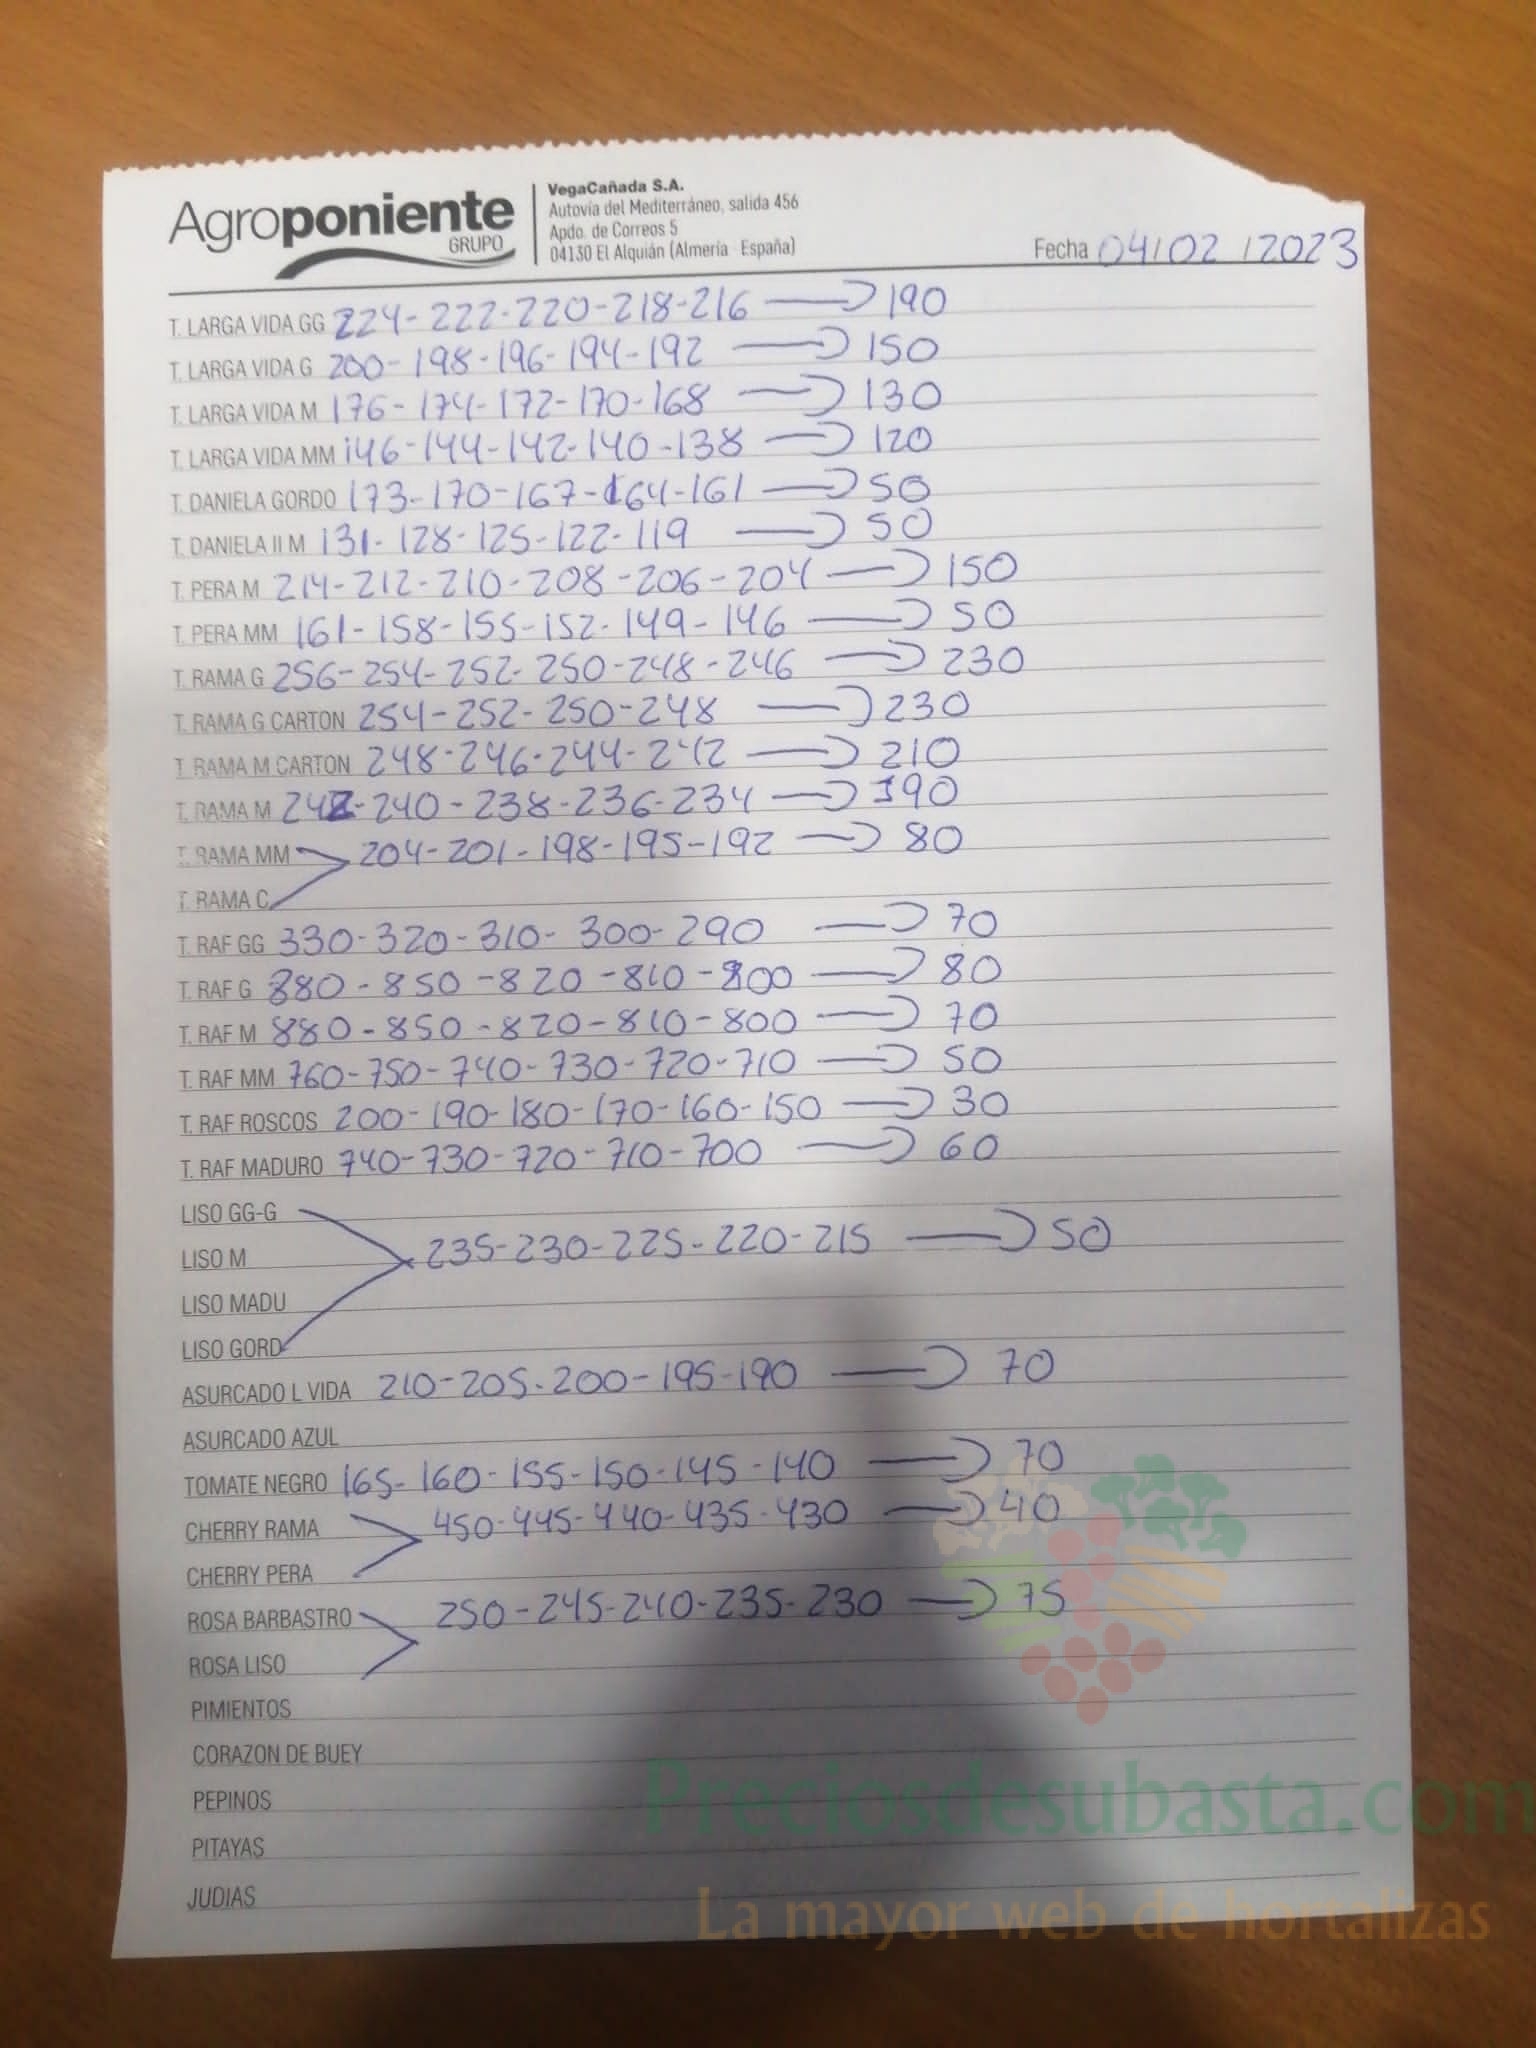 Agroponiente
GRUPO
VegaCañada S.A.
Autovía del Mediterráneo, salida 456
Apdo. de Correos 5
04130 El Alquián (Almería - España)
Fecha 04/02/2023
T. LARGA VIDA GG 224-222-220-218-216 → 190
T. LARGA VIDA G 200-198-196-194-192 → 150
T. LARGA VIDA M 176-174-172-170-168 → 130
T. LARGA VIDA MM 146-144-142-140-138 → 120
T. DANIELA GORDO 173-170-167-164-161 → 50
T. DANIELA II M 131-128-125-122-119 → 50
T. PERA M 214-212-210-208-206-204 → 150
T. PERA MM 161-158-155-152-149-146 → 50
T. RAMA G 256-254-252-250-248-246 → 230
T. RAMA G CARTON 254-252-250-248 → 230
T. RAMA M CARTON 248-246-244-242 → 210
T. RAMA M 242-240-238-236-234 → 190
T. RAMA MM 204-201-198-195-192 → 80
T. RAMA C
T. RAF GG 330-320-310-300-290 → 70
T. RAF G 880-850-820-810-800 → 80
T. RAF M 880-850-820-810-800 → 70
T. RAF MM 760-750-740-730-720-710 → 50
T. RAF ROSCOS 200-190-180-170-160-150 → 30
T. RAF MADURO 740-730-720-710-700 → 60
LISO GG-G
LISO M 235-230-225-220-215 → 50
LISO MADU
LISO GORD
ASURCADO L VIDA 210-205-200-195-190 → 70
ASURCADO AZUL
TOMATE NEGRO 165-160-155-150-145-140 → 70
CHERRY RAMA 450-445-440-435-430 → 40
CHERRY PERA
ROSA BARBASTRO 250-245-240-235-230 → 75
ROSA LISO
PIMIENTOS
CORAZON DE BUEY
PEPINOS
PITAYAS
JUDIAS
Preciosdesubasta.com
La mayor web de hortalizas